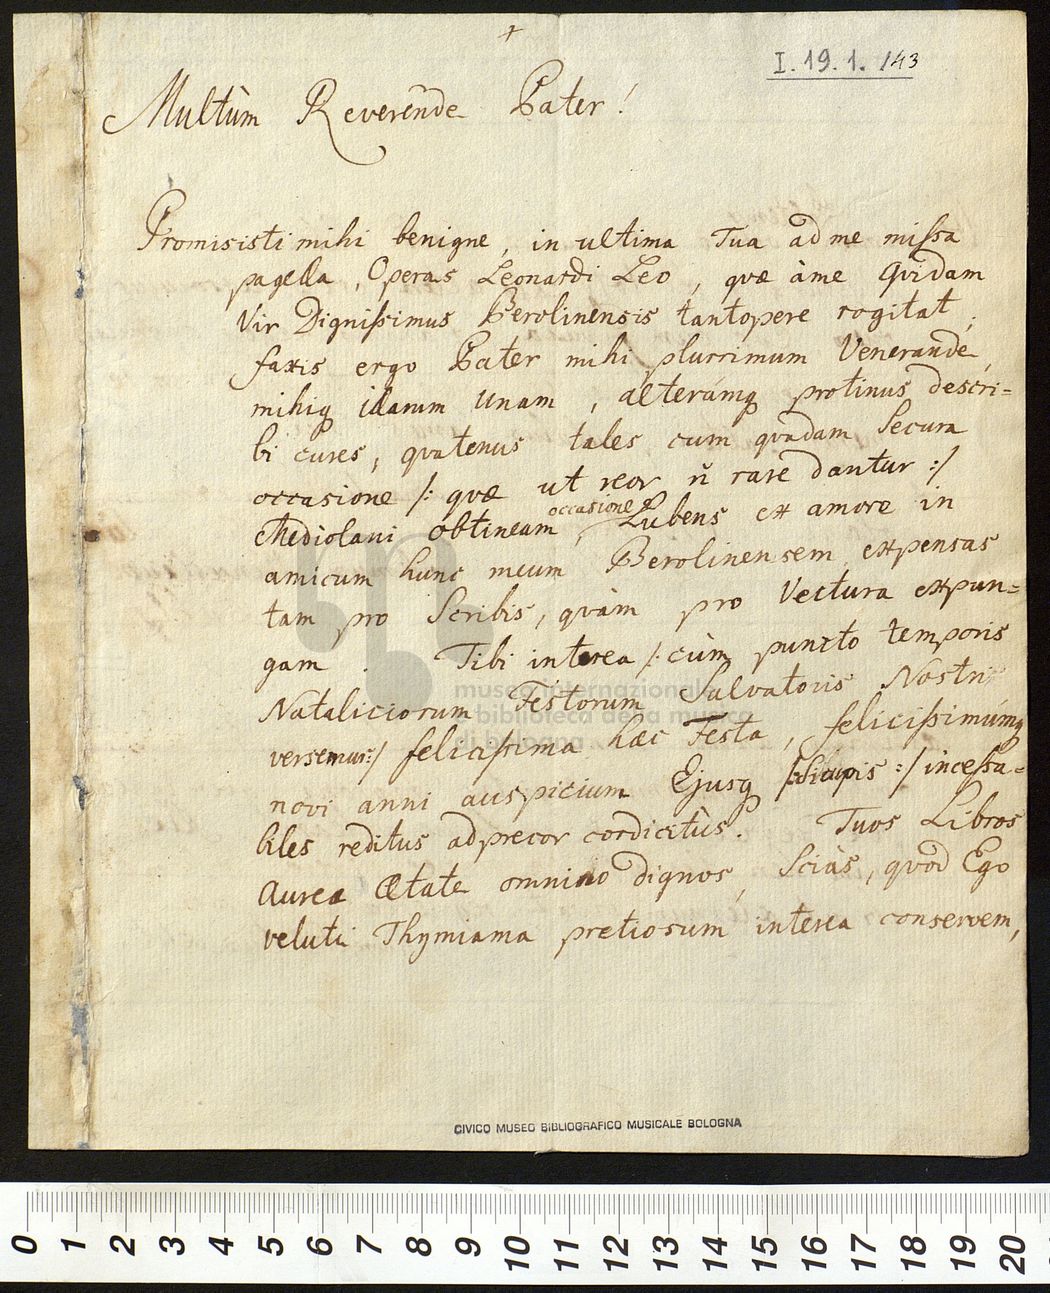 +
I. 19. 1. 143
Multùm Reverende Pater!
Promisisti mihi benigne, in ultima Tua ad me missa
pagella, Operas Leonardi Leo, quæ àme Quidam
Vir Dignissimus Berolinensis tantopere rogitat,
faxis ergo Pater mihi plurrimum Venerande,
mihiq illarum Unam, alterámq protinus descri=
bi cures, quatenus tales, cum quadam Secura
occasione /: quæ ut reor n̄ rare dantur :/
occasione
Mediolani obtineam, Lubens ex amore in
amicum hunc meum Berolinensem expensas
tam pro Scribis, quàm pro Vectura expun=
gam. Tibi interea /: cùm puncto temporis
Nataliciorum Festorum Salvatoris Nostri
versemur :/ felicissima hæc Festa, felicissimúmq
novi anni auspicium Ejusq /: :/ incessa=
biles reditus adprecor cordicitùs. Tuos Libros
Aurea Ætate omnino dignos, Sciàs, quod Ego
veluti Thymiama pretiosum interea conservem,
museo internazionale
e biblioteca della musica
di bologna
CIVICO MUSEO BIBLIOGRAFICO MUSICALE BOLOGNA
0 1 2 3 4 5 6 7 8 9 10 11 12 13 14 15 16 17 18 19 20